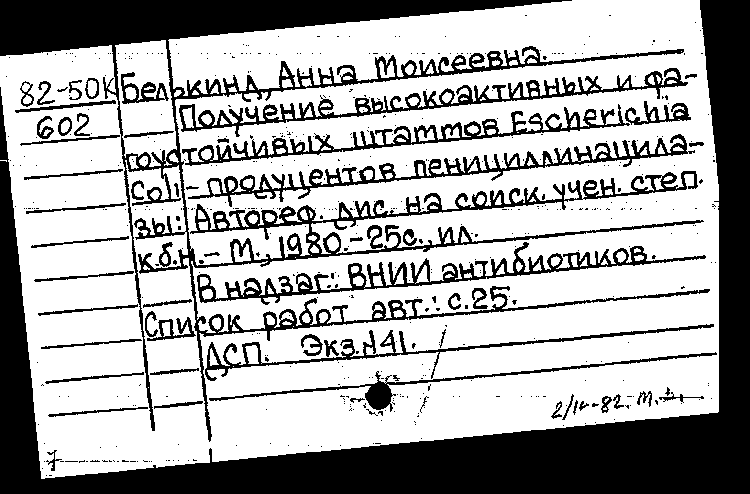 82-50К Белькинд, Анна Моисеевна.
602 Получение высокоактивных и фа-
гоустойчивых штаммов Escherichia
Coli - продуцентов пенициллинацила-
зы: Автореф. дис. на соиск. учен. степ.
к.б.н. - М., 1980. - 25с., ил.
В надзаг.: ВНИИ антибиотиков.
Список работ авт.: с.25.
ДСП. Экз.№41.